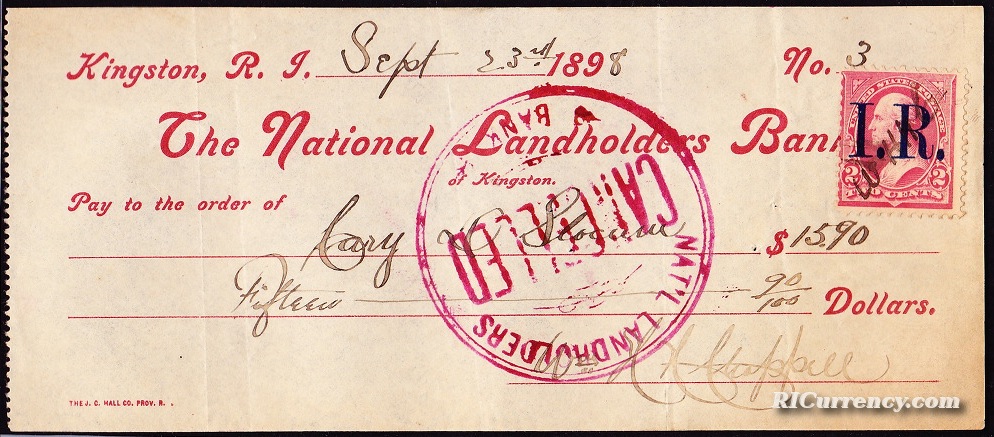 Kingston, R. I. Sept 23rd 1898 No. 3
The National Landholders Bank
of Kingston.
Pay to the order of
Cary $15.90
Fifteen 90/100 Dollars.
Wm
THE J. C. HALL CO. PROV. R.
UNITED STATES POSTAGE
I.R.
2 CENTS 2
NAT'L LANDHOLDERS BANK
CANCELLED
RICurrency.com